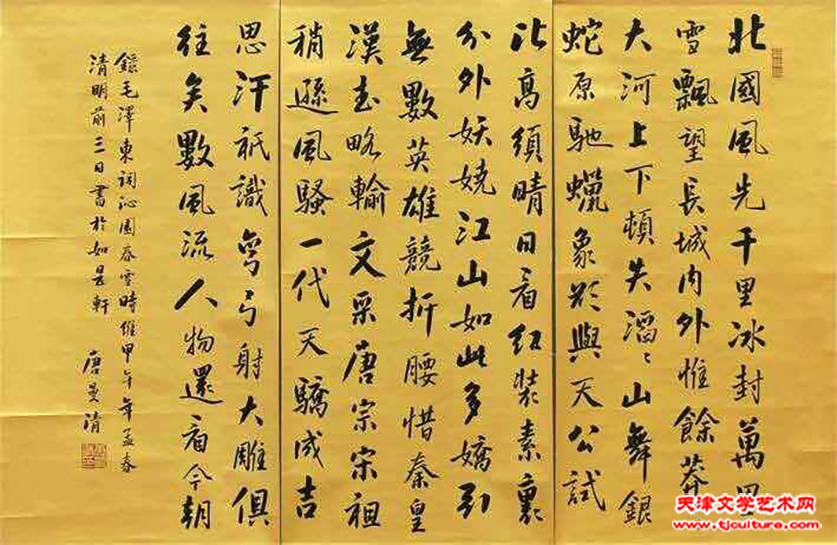 北國風光千里冰封萬里
雪飄望長城內外惟餘莽
大河上下頓失滔〻山舞銀
蛇原馳蠟象欲與天公試
比高須晴日看紅裝素裹
分外妖嬈江山如此多嬌引
無數英雄競折腰惜秦皇
漢武略輸文采唐宗宋祖
稍遜風騷一代天驕成吉
思汗祇識彎弓射大雕俱
往矣數風流人物還看今朝
錄毛澤東詞沁園春雪時維甲午年孟春
清明前三日書於如是軒 唐曼清
天津文学艺术网
www.tjculture.com